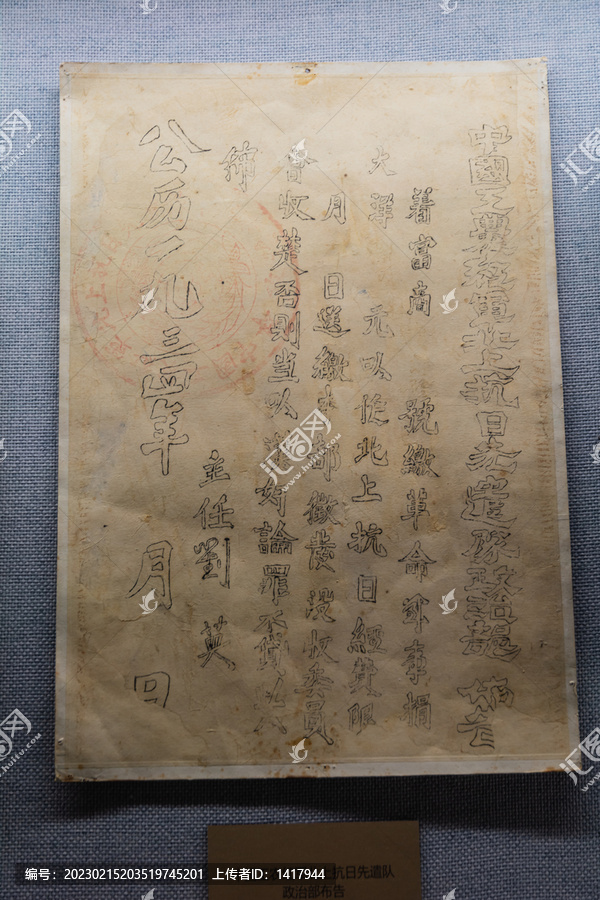 中國工農紅軍北上抗日先遣隊政治部 佈告
着富商 號繳革命軍事捐
大洋 元以作北上抗日經費限
月 日送繳本部徵發沒收委員
會收楚否則当以漢奸論罪不貸此
佈
主任劉英
公历一九三四年 月 日
上抗日先遣队
政治部布告
汇图网
www.huitu.com
编号:20230215203519745201 上传者ID:1417944